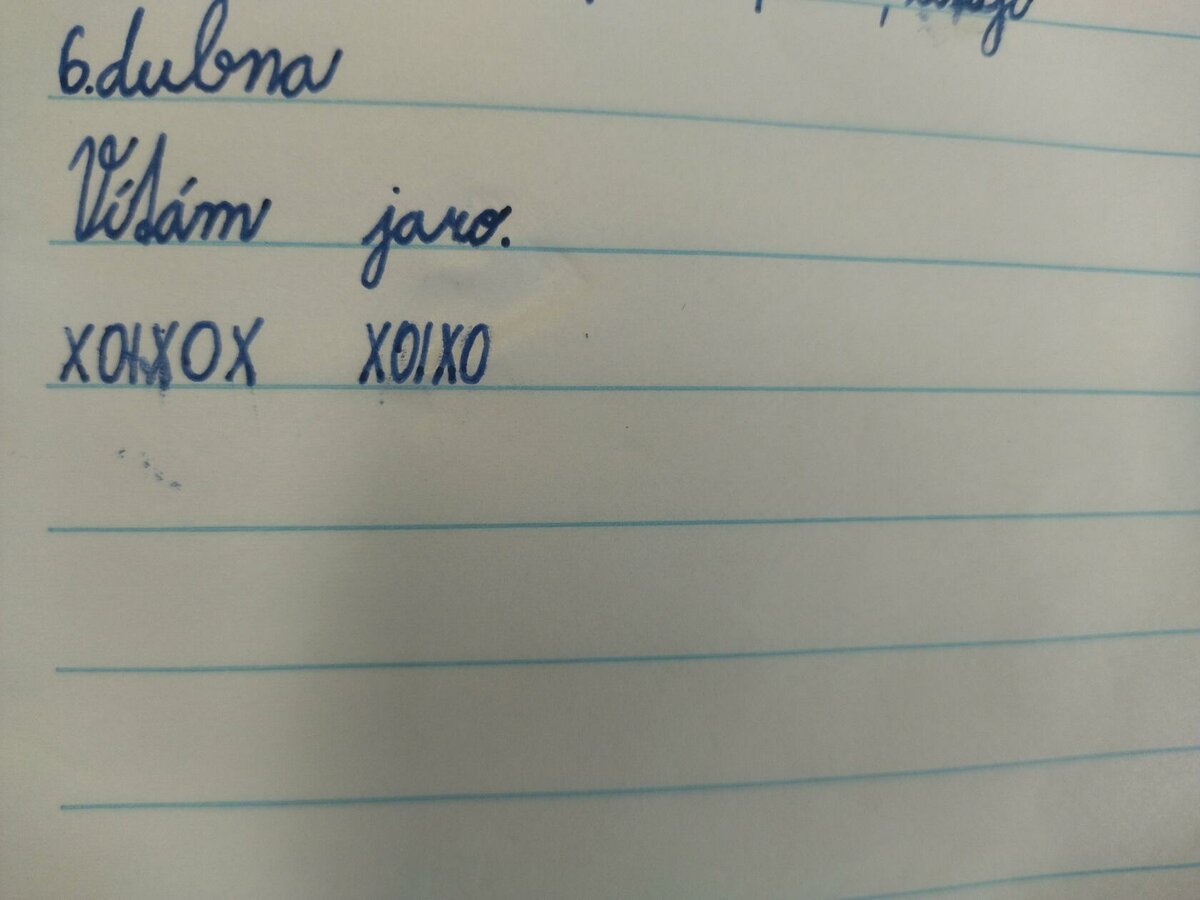 6. dubna
Vítám jaro.
XOIXOX XOIXO